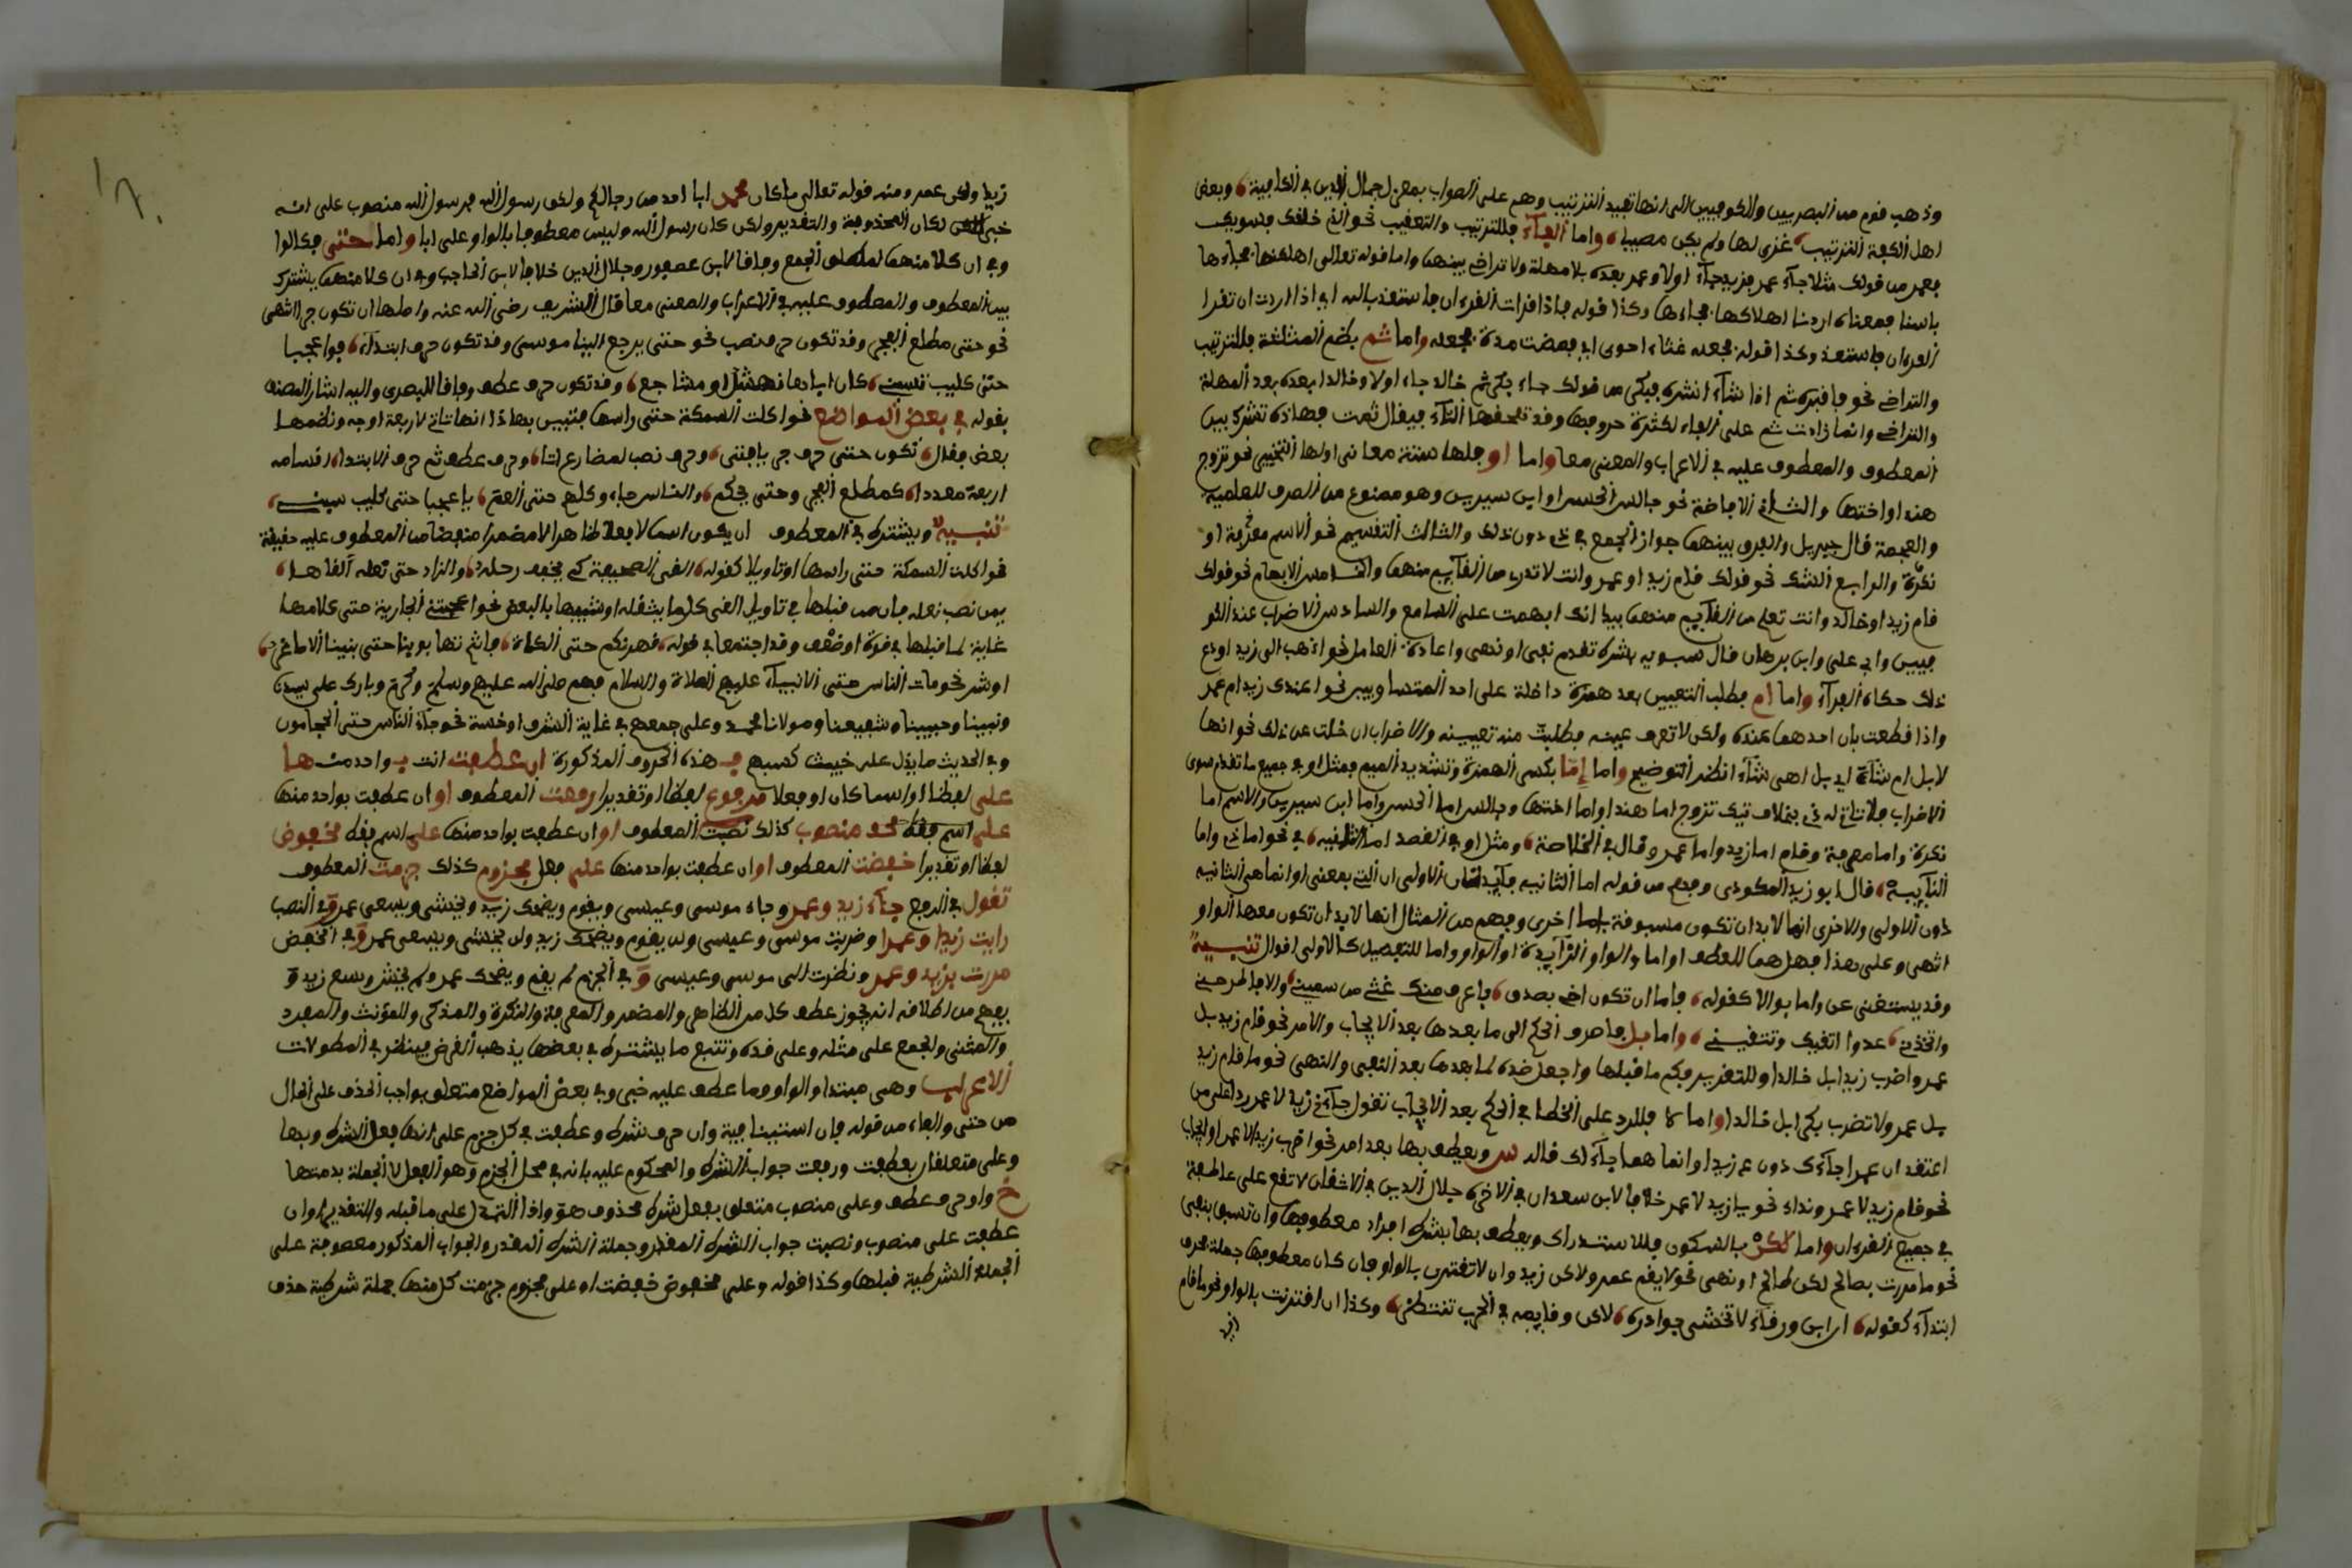 وذهب قوم من البصريين والكوفيين الى انها تفيد الترتيب وهم على الصواب بمعزل جمال الدين في الكافية وبعض
اهل الكوفة الترتيب عزى لها ولم يكن مصيبا واما الفاء فللترتيب والتعقيب نحو الذي خلقك فسويك
فعمر من قولك مثلا جاء عمر فزيد جاء اولا وعمر بعده بلا مهلة ولا تراخ بينهما واما قوله تعالى اهلكنها فجاءها
باسنا فمعناه اردنا اهلاكها فجاءها وكذا قوله فاذا قرات القرءان فاستعذ بالله اي اذا اردت ان تقرا
القرءان فاستعذ وكذا قوله فجعله غثاء احوى اي فمضت مدة فجعله واما ثم بضم المثلثة فللترتيب
والتراخي نحو فاقبره ثم اذا شاء انشره فبكر من قولك جاء بكر ثم خالد جاء اولا وخالد بعده بعد المهلة
والتراخي وانما زادت ثم على الفاء لكثرة حروفها وقد تلحقها التاء فيقال ثمت فهاذه تشرك بين
المعطوف والمعطوف عليه في الاعراب والمعنى معا واما او فلها ستة معاني اولها التخيير نحو تزوج
هندا او اختها والثاني الاباحة نحو جالس الحسن او ابن سيرين وهو ممنوع من الصرف للعلمية
والعجمة قال جبريل والفرق بينهما جواز الجمع في ذي دون تلك والثالث التقسيم نحو الاسم معرفة او
نكرة والرابع الشك نحو قولك قام زيد او عمر وانت لا تدري من القايم منهما والخامس الابهام نحو قولك
قام زيد او خالد وانت تعلم من القايم منهما بيد انك ابهمت على السامع والسادس الاضراب عند الكو
فيين وابي علي وابن برهان قال سبويه بشرط تقدم نفي او نهي واعادة العامل نحو اذهب الى زيد او دع
ذلك حكاه الفراء واما ام فطلب التعيين بعد همزة داخلة على احد المتساويين نحو اعندك زيد ام عمر
واذا قطعت بان احدهما عنده ولكن لا تعرف عينه فطلبت منه تعيينه والاضراب ان خلت عن ذلك نحو انها
لابل ام شاة اي بل اهي شاء انظر التوضيح واما إما بكسر الهمزة وتشديد الميم فمثل او في جميع ما تقدم سوى
الاضراب فلا تاتي له بخلاف تيك تزوج اما هندا واما اختها وجالس اما الحسن واما ابن سيرين والاسم اما
نكرة واما معرفة وقام اما زيد واما عمر وقال في الخلاصة ومثل او في القصد اما الثانيه في نحو اما ذي واما
النآييه قال ابو زيد المكودي وفهم من قوله اما الثانيه فايدتان الاولى ان التي بمعنى او انما هي الثانيه
دون الاولى والاخرى انها لا بد ان تكون مسبوقة باما اخرى وفهم من المثال انها لا بد ان تكون معها الواو
انتهى وعلى هذا فهل هما للعطف او اما والواو الزايدة او الواو واما للتفصيل كالاولى اقوال تنبيه
وقد يستغنى عن واما بوالا كقوله فاما ان تكون اخي بصدق فاعرف منك غثي من سميني والا فاطرحني
واتخذني عدوا اتقيك وتتقيني واما بل فاصرف الحكم الى ما بعدها بعد الايجاب والامر نحو قام زيد بل
عمر واضرب زيدا بل خالدا وللتقرير حكم ما قبلها واجعل ضده لما بعدها بعد النفي والنهي نحو ما قام زيد
بل عمر ولا تضرب بكرا بل خالدا واما لا فللرد على الخطا في الحكم بعد الايجاب تقول جاءني زيد لا عمر ردا على من
اعتقد ان عمرا جاءك دون زيد او انما هما جاءا لك قال س ويعطف بها بعد امر نحو اضرب زيدا لا عمرا وايجاب
نحو قام زيد لا عمر ونداء نحو يا زيد لا عمر خلافا لابن سعدان في الاخير جلال الدين في الاتقان لا تقع على عاطفة
في جميع القرءان واما لكن بالسكون فللاستدراك ويعطف بها بشرط افراد معطوفها وان تسبق بنفي
نحو ما مررت بصالح لكن طالح او نهي نحو لا يقم عمر ولاكن زيد وان لا تقترن بالواو فان كان معطوفها جملة فحرف
ابتداء كقوله ان ابن ورقاء لا تخشى بوادره لاكن وقايعه في الحرب تنتظر وكذا ان اقترنت بالواو نحو ما قام
زيد
زيد ولكن عمر ومنه قوله تعالى ما كان محمد ابا احد من رجالكم ولكن رسول الله فرسول الله منصوب على انه
خبر لكان المحذوفة والتقدير ولكن كان رسول الله وليس معطوفا بالواو على ابا واما حتى فكالواو
في ان كلا منهما لمطلق الجمع وفاقا لابن عصفور وجلال الدين خلافا لابن الحاجب وفي ان كلا منهما يشترك
بين المعطوف والمعطوف عليه في الاعراب والمعنى معا قال الشريف رضي الله عنه واصلها ان تكون جرا انتهى
نحو حتى مطلع الفجر وقد تكون حرف نصب نحو حتى يرجع الينا موسى وقد تكون حرف ابتداء فوا عجبا
حتى كليب تسبني كان اباها نهشل او مشاجع وقد تكون حرف عطف وفاقا للبصري واليه اشار المصنف
بقوله في بعض المواضع نحو اكلت السمكة حتى راسها فتبين بهاذا انها تاتي لاربعة اوجه ونظمها
بعض فقال تكون حتى حرف جر يافتى وحرف نصب لمضارع اتا وحرف عطف ثم حرف الابتدا اقسامه
اربعة معددا كمطلع الفجر وحتى يحكم والناس جاء وكلهم حتى العم يا عجبا حتى كليب سبني
تنبيه ويشترط في المعطوف ان يكون اسما لا فعلا ظاهرا لا مضمرا منبعضا من المعطوف عليه حقيقة
نحو اكلت السمكة حتى راسها او تاويلا كقوله القى الصحيفة كي يخفف رحله والزاد حتى نعله القاها
فيمن نصب نعله فان من قبلها في تاويل القى كل ما يثقله او شبيها بالبعض نحو اعجبتني الجارية حتى كلامها
غاية لما قبلها في قوة او ضعف وقد اجتمعا في قوله قهرنكم حتى الكماة فانتم تهابوننا حتى بنينا الاصاغر
او شرف نحو مات الناس حتى الانبياء عليهم الصلاة والسلام فهم صلى الله عليهم وسلم وكرم وبارك على سيدنا
ونبينا وحبيبنا وشفيعنا ومولانا محمد وعلى جميعهم في غاية الشرف او خسة نحو جاء الناس حتى الحجامون
وفي الحديث ما يدل على خبيث كسبهم فـ هذه الحروف المذكورة ان عطفت انت بـ واحد منـ هـا
على لفظا او اسما كان او فعلا مرفوع لفظا او تقديرا رفعت المعطوف او ان عطفت بواحد منها
على اسم فقط منصوب كذلك نصبت المعطوف او ان عطفت بواحد منها على اسم فقط مخفوض
لفظا او تقديرا خفضت المعطوف او ان عطفت بواحد منها على فعل مجزوم كذلك جزمت المعطوف
تقول في الرفع جاء زيد وعمر وجاء موسى وعيسى ويقوم ويضحك زيد ويخشى ويسعى عمر و في النصب
رايت زيدا وعمرا وضربت موسى وعيسى ولن يقوم ويضحك زيد ولن يخشى ويسعى عمر و في الخفض
مررت بزيد وعمر ونظرت الى موسى وعيسى و في الجزم لم يقم ويضحك عمر ولم يخش ويسع زيد و
يفهم من اطلاقه انه يجوز عطف كل من الظاهر والمضمر والمعرفة والنكرة والمذكر والمؤنث والمفرد
والمثنى والجمع على مثله وعلى ضده وتتبع ما يشترط في بعضها يذهب الغرض فينظر في المطولات
الاعراب وهي مبتدا والواو وما عطف عليه خبر وفي بعض المواضع متعلق بواجب الحذف على الحال
من حتى والفاء من قوله فان استينافية وان حرف شرط وعطفت في محل جزم على انها فعل الشرط وبها
وعلى متعلقان بعطفت ورفعت جواب الشرط والمحكوم عليه بانه في محل الجزم وهو الفعل لا الجملة بدمتها
خ واو حرف عطف وعلى منصوب متعلق بفعل شرط محذوف هو واذا الدال على ما قبله والتقدير او ان
عطفت على منصوب ونصبت جواب الشرط المقدر وجملة الشرط المقدر والجواب المذكور معطوفة على
الجملة الشرطية قبلها وكذا قوله وعلى مخفوض خفضت او على مجزوم جزمت كل منها جملة شرطية حذف